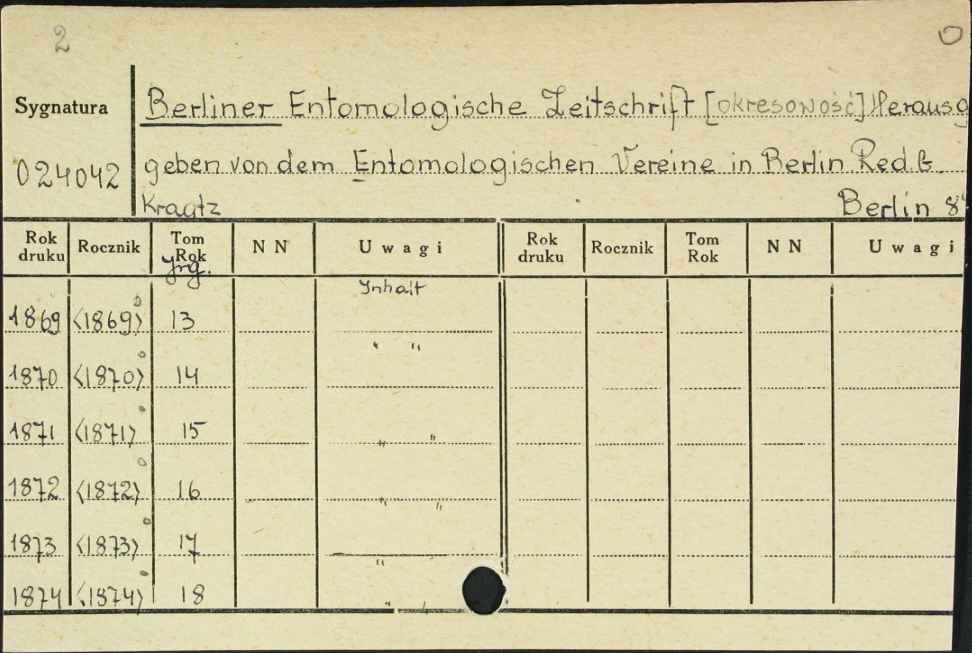 2
Sygnatura
024042
Berliner Entomologische Zeitschrift [okresowość] Herausg
geben von dem Entomologischen Vereine in Berlin Red. G.
Kraatz Berlin 8°
Rok druku Rocznik Tom Rok Jrg. NN Uwagi Rok druku Rocznik Tom Rok NN Uwagi
Inhalt
1869 <1869> 13
" "
1870 <1870> 14
1871 <1871> 15 " "
1872 <1872> 16
" "
1873 <1873> 17
"
1874 <1874> 18